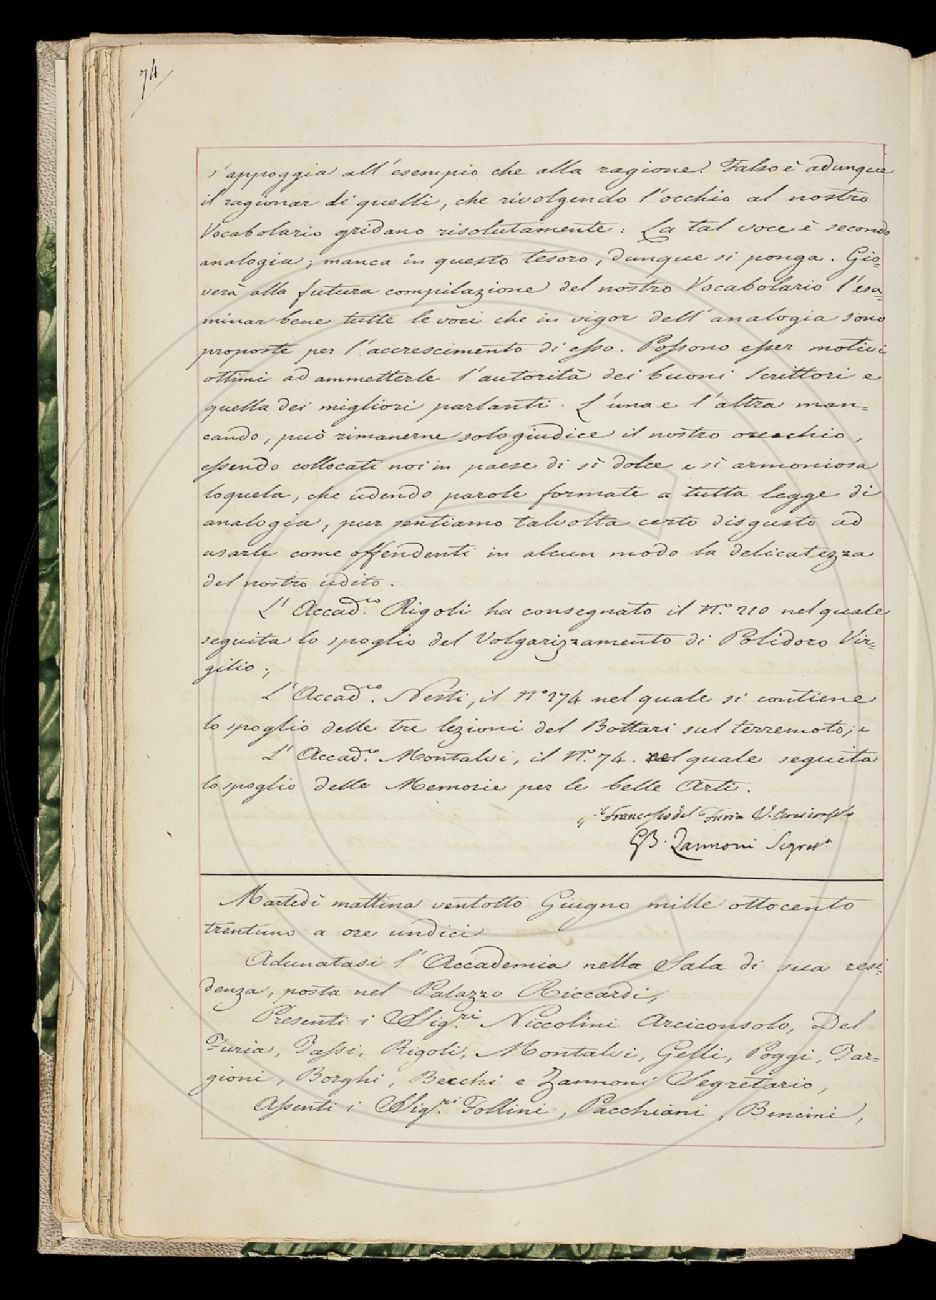 74
s'appoggia all'esempio che alla ragione. Falso è adunque
il ragionar di quelli, che rivolgendo l'occhio al nostro
Vocabolario gridano risolutamente: La tal voce è secondo
analogia; manca in questo tesoro; dunque si ponga. Gio=
verà alla futura compilazione del nostro Vocabolario l'esa=
minar bene tutte le voci che in vigor dell'analogia sono
proposte per l'accrescimento di esso. Possono esser motivi
ottimi ad ammetterle l'autorità dei buoni Scrittori e
quella dei migliori parlanti. L'una e l'altra man=
cando, può rimanerne solo giudice il nostro orecchio,
essendo collocati noi in paese di sì dolce e sì armoniosa
loquela, che udendo parole formate a tutta legge di
analogia, pur sentiamo talvolta certo disgusto ad
usarle come offendenti in alcun modo la delicatezza
del nostro udito.
L'Accad.co Rigoli ha consegnato il N.o 210 nel quale
seguita lo spoglio del Volgarizzamento di Polidoro Vir=
gilio;
L'Accad.co Nesti, il N.o 274 nel quale si contiene
lo spoglio delle tre lezioni del Bottari sul terremoto; e
L'Accad.co Montalvi, il N.o 74. nel quale seguita
lo spoglio delle Memorie per le belle Arti.
Francesco del Furia V. Arciconsolo
G.B. Zannoni Segret.o
Martedì mattina ventotto Giugno mille ottocento
trentuno a ore undici
Adunatasi l'Accademia nella Sala di sua resi=
denza, posta nel Palazzo Riccardi,
Presenti i SSig.ri Niccolini Arciconsolo, Del
Furia, Tassi, Rigoli, Montalvi, Gelli, Poggi, Tar=
gioni, Borghi, Becchi e Zannoni Segretario,
Assenti i SSig.ri Follini, Pacchiani, Bencini,